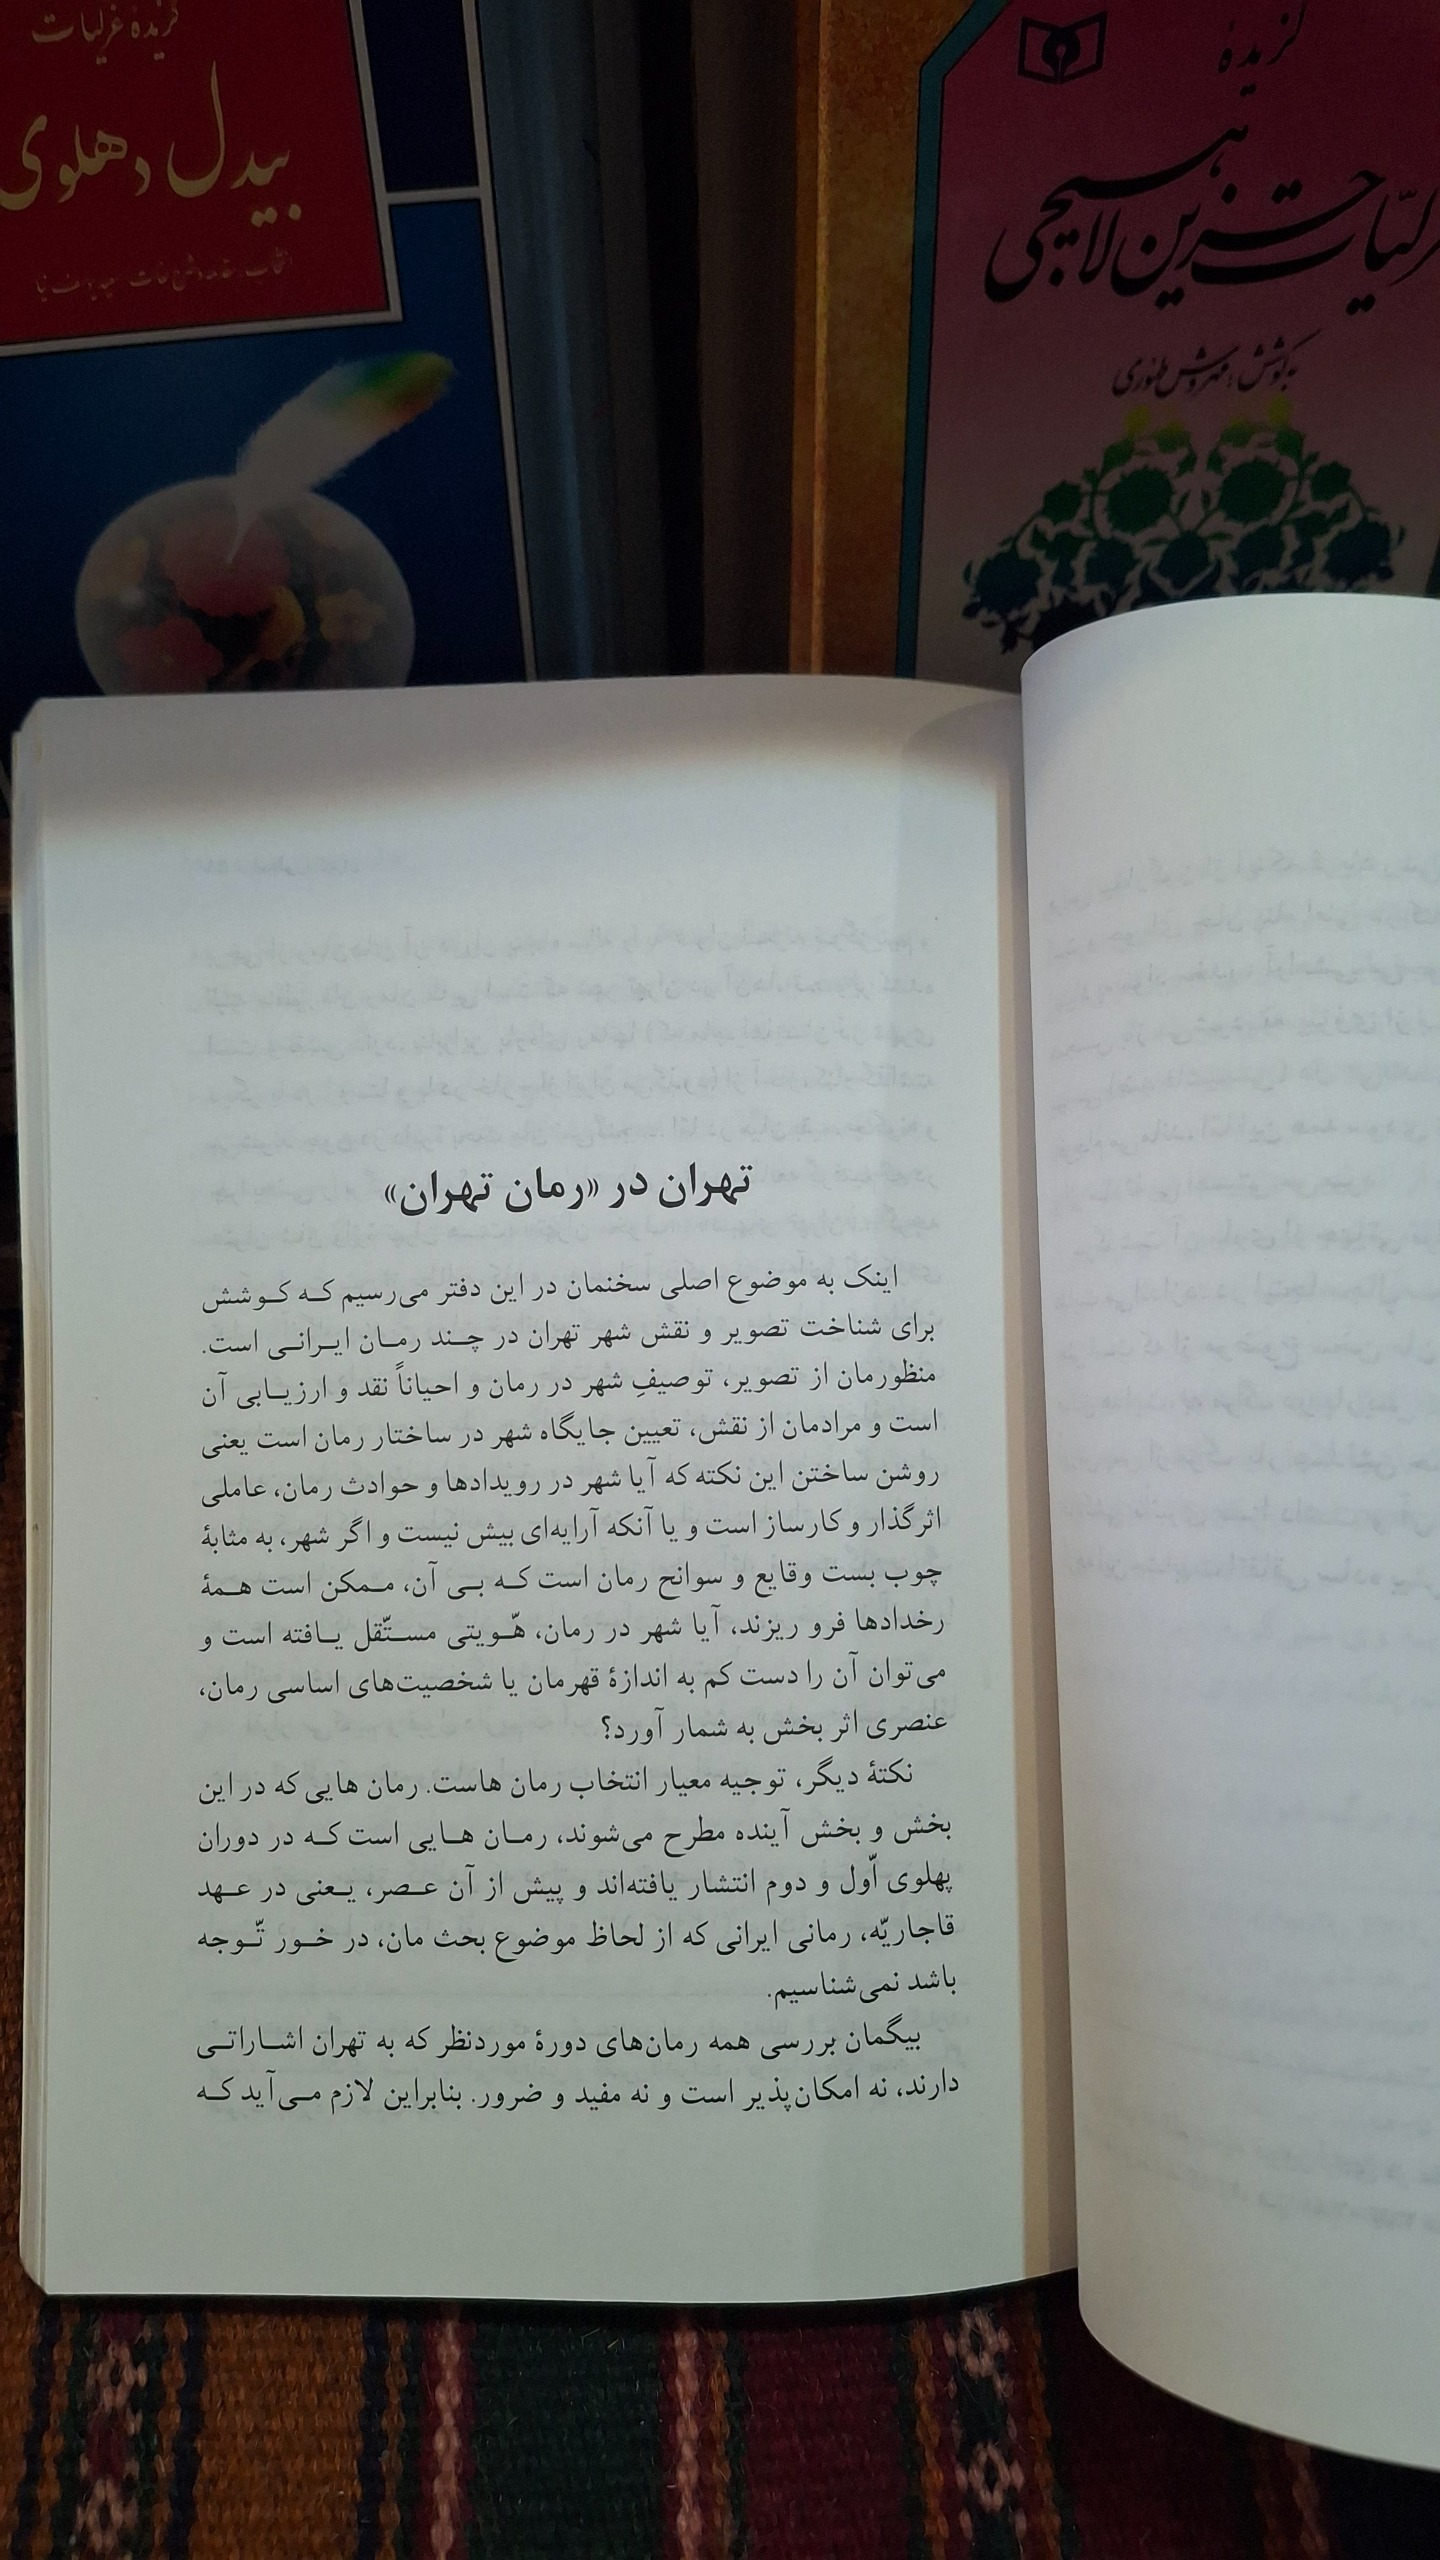 گزیده غزلیات
بیدل دهلوی
گزیدهٔ
غزلیّات حزین لاهیجی
به کوشش: مهروش طهوری
تهران در «رمان تهران»
اینک به موضوع اصلی سخنمان در این دفتر می‌رسیم که کوشش
برای شناخت تصویر و نقش شهر تهران در چند رمان ایرانی است.
منظورمان از تصویر، توصیفِ شهر در رمان و احیاناً نقد و ارزیابی آن
است و مرادمان از نقش، تعیین جایگاه شهر در ساختار رمان است یعنی
روشن ساختن این نکته که آیا شهر در رویدادها و حوادث رمان، عاملی
اثرگذار و کارساز است و یا آنکه آرایه‌ای بیش نیست و اگر شهر، به مثابهٔ
چوب بست وقایع و سوانح رمان است که بی آن، ممکن است همهٔ
رخدادها فرو ریزند، آیا شهر در رمان، هّویتی مستّقل یافته است و
می‌توان آن را دست کم به اندازهٔ قهرمان یا شخصیت‌های اساسی رمان،
عنصری اثر بخش به شمار آورد؟
نکتهٔ دیگر، توجیه معیار انتخاب رمان هاست. رمان هایی که در این
بخش و بخش آینده مطرح می‌شوند، رمان هایی است که در دوران
پهلوی اّول و دوم انتشار یافته‌اند و پیش از آن عصر، یعنی در عهد
قاجاریّه، رمانی ایرانی که از لحاظ موضوع بحث مان، در خور تّوجه
باشد نمی‌شناسیم.
بیگمان بررسی همه رمان‌های دورهٔ موردنظر که به تهران اشاراتی
دارند، نه امکان‌پذیر است و نه مفید و ضرور. بنابراین لازم می‌آید که